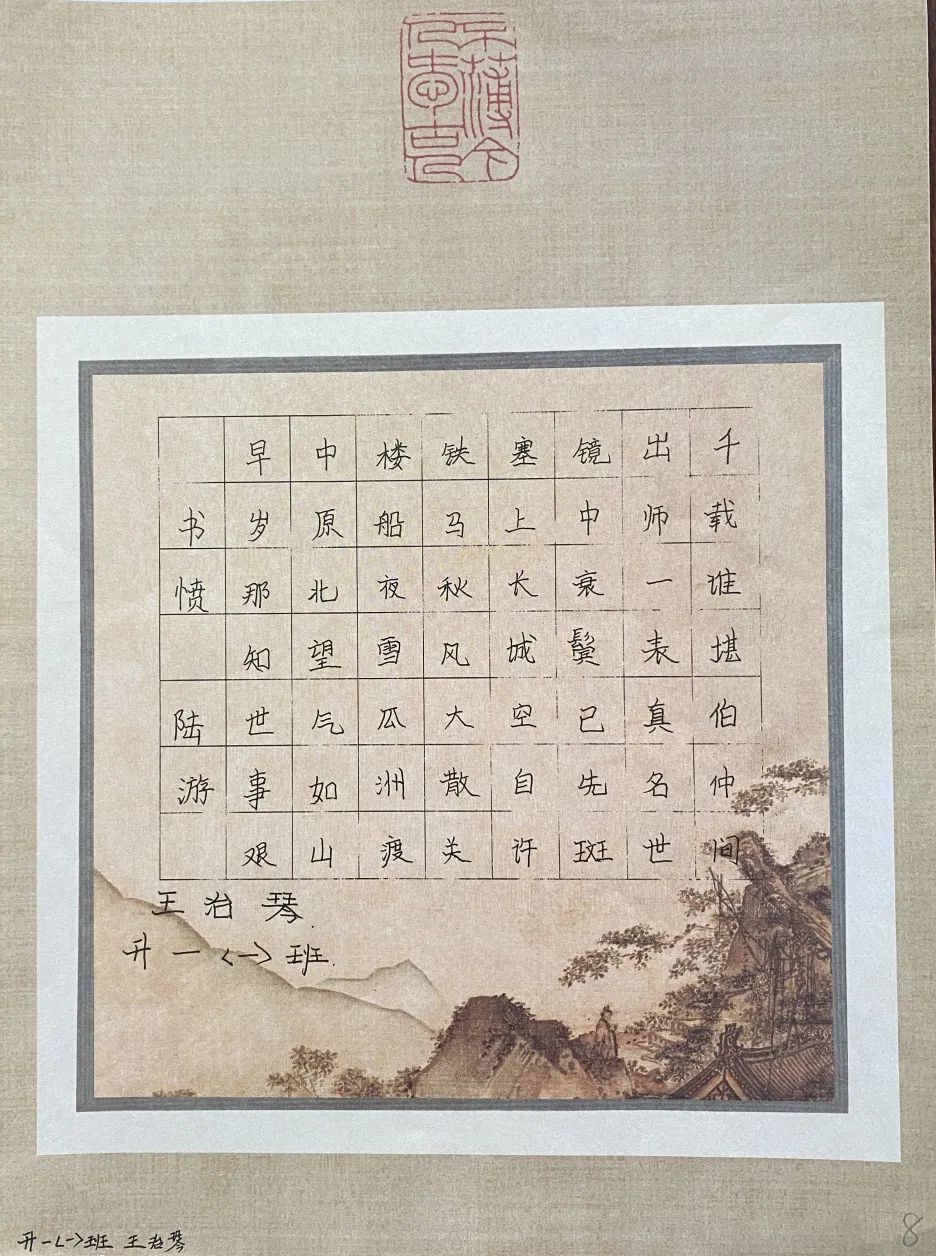 书愤 陆游
早岁那知世事艰
中原北望气如山
楼船夜雪瓜洲渡
铁马秋风大散关
塞上长城空自许
镜中衰鬓已先斑
出师一表真名世
千载谁堪伯仲间
王治琴.
升一<一>班.
升一<一>班 王治琴
8